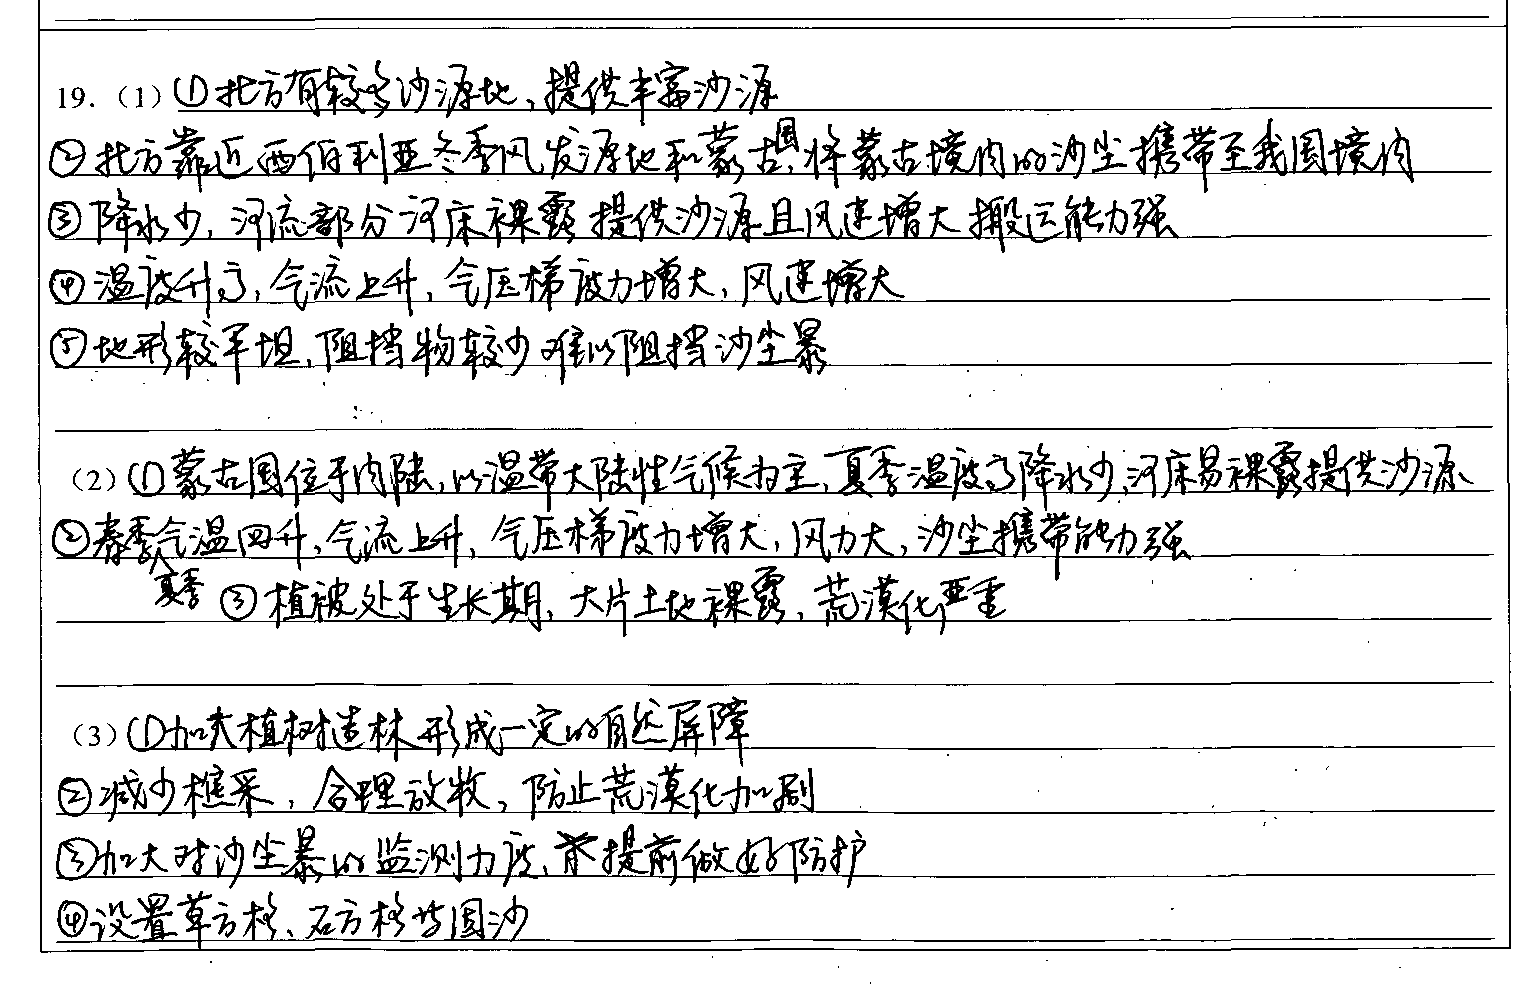 19.（1）①北方有较多沙源地，提供丰富沙源
②北方靠近西伯利亚冬季风发源地和蒙古国，将蒙古境内的沙尘携带至我国境内
③降水少，河流部分河床裸露 提供沙源且风速增大 搬运能力强
④温度升高，气流上升，气压梯度力增大，风速增大
⑤地形较平坦，阻挡物较少 难以阻挡沙尘暴
（2）①蒙古国位于内陆，以温带大陆性气候为主，夏季温度高降水少，河床易裸露提供沙源
②春季气温回升，气流上升，气压梯度力增大，风力大，沙尘携带能力强
夏季 ③植被处于生长期，大片土地裸露，荒漠化严重
（3）①加大植树造林 形成一定的自然屏障
②减少樵采，合理放牧，防止荒漠化加剧
③加大对沙尘暴的监测力度，提前做好防护
④设置草方格、石方格等固沙